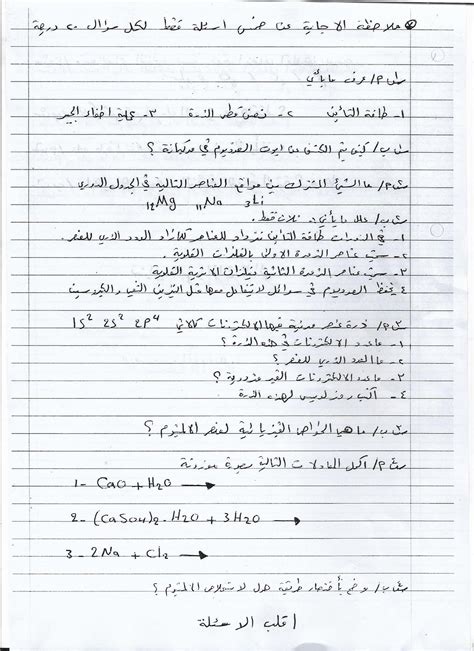 ملاحظة الاجابة عن خمس اسئلة فقط لكل سؤال ٢٠ درجة
س١/ P/ عرف ما يأتي
١- طاقة التأين ٢- نصف قطر الذرة ٣- عملية اطفاء الجير
س١ ب/ كيف يتم الكشف عن ايون الصوديوم في مركباته ؟
س٢/ P/ ما الشيئ المشترك بين مواقع العناصر التالية في الجدول الدوري
12Mg 11Na 3Li
س٢ ب/ علل ما يأتي :- ثلاث فقط .
١- في الدورات طاقة التأين تزداد للعناصر كلما زاد العدد الذري للعنصر
٢- سميت عناصر الزمرة الاولى بالفلزات القلوية .
٣- سميت عناصر الزمرة الثانية فلزات الاتربة القلوية
٤ يحفظ الصوديوم في سوائل لا يتفاعل معها مثل البنزين النقي والكيروسين
س٣/ P/ ذرة عنصر مرتبة فيها الالكترونات كالاتي 1S² 2S² 2P⁴
١- ما عدد الالكترونات في هذه الذرة ؟
٢- ما العدد الذري للعنصر ؟
٣- ما عدد الالكترونات الغير مزدوجة ؟
٤- أكتب رمز لويس لهذه الذرة
س٣ ب/ ما هي الخواص الفيزيائية لعنصر الالمنيوم ؟
س٤/ P/ اكمل المعادلات التالية بصورة موزونة
1- CaO + H2O →
2- (CaSO4)2 . H2O + 3H2O →
3- 2Na + Cl2 →
س٤ ب/ وضح بأختصار طريقة هول لاستخلاص الالمنيوم ؟
اقلب الاسئلة